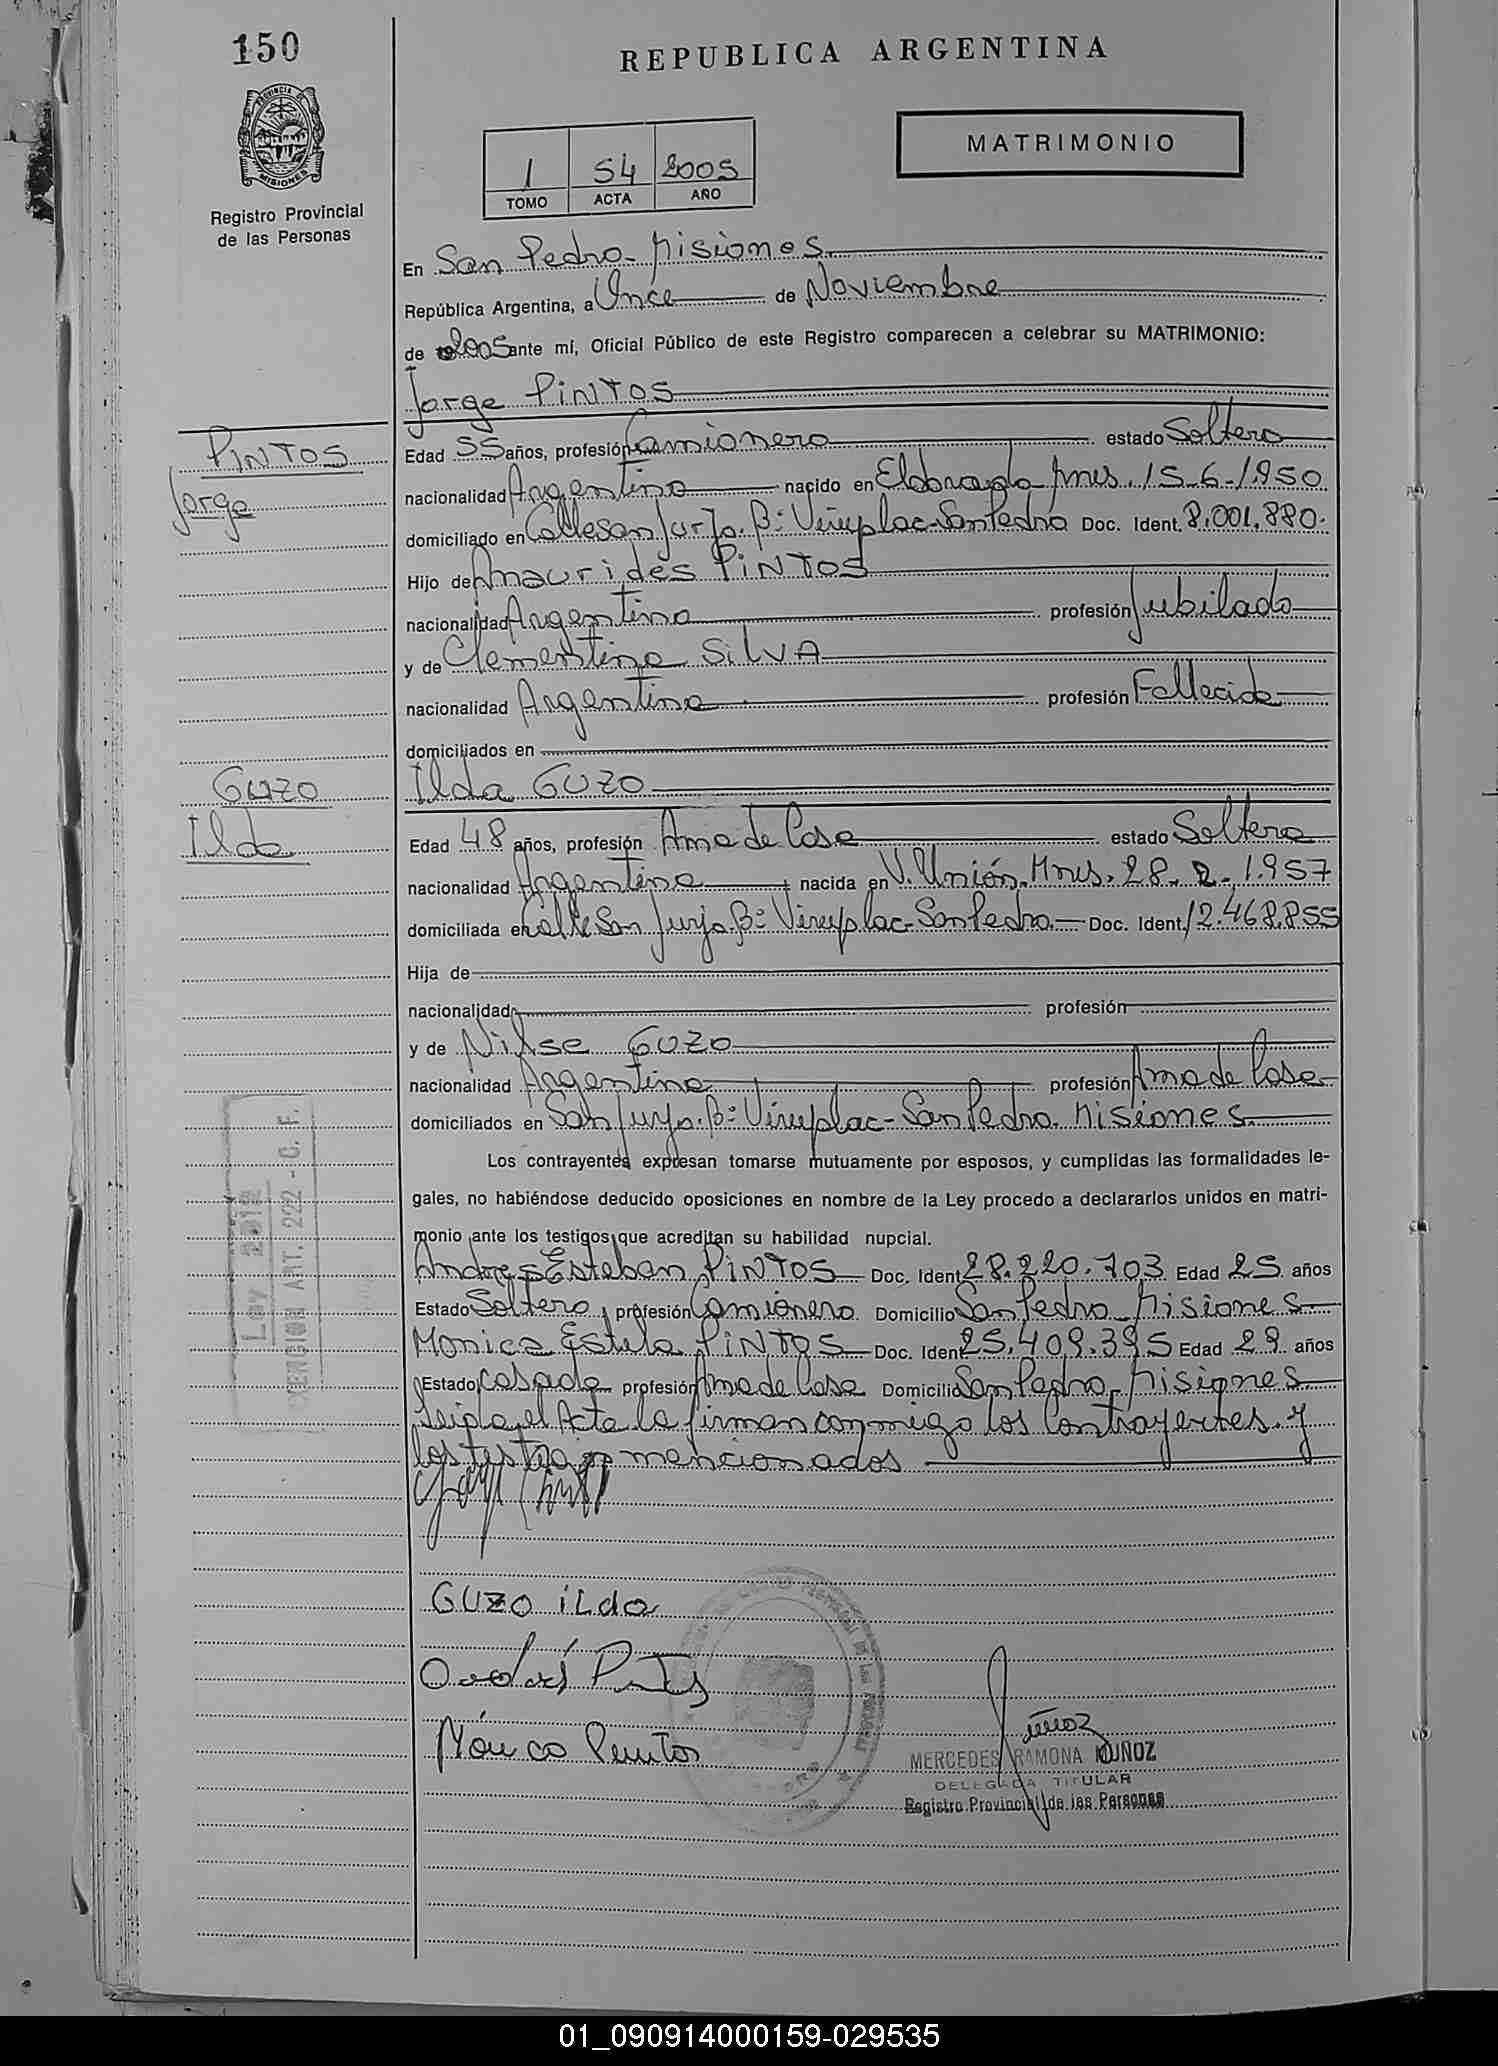 150
REPUBLICA ARGENTINA
PROVINCIA DE MISIONES
Registro Provincial
de las Personas
1 54 2005
TOMO ACTA AÑO
MATRIMONIO
En San Pedro - Misiones
República Argentina, a Once de Noviembre
de 2005 ante mí, Oficial Público de este Registro comparecen a celebrar su MATRIMONIO:
Jorge PINTOS
PINTOS
Jorge
Edad 55 años, profesión Camionero estado Soltero
nacionalidad Argentino nacido en Eldorado Mnes. 15-6-1950
domiciliado en Calle San Jurjo. Bº: Viruplac-San Pedro Doc. Ident. 8.001.880.
Hijo de Amaurides PINTOS
nacionalidad Argentino profesión Jubilado
y de Clementina SILVA
nacionalidad Argentina profesión Fallecida
domiciliados en
GUZO
Ilda
Ilda GUZO
Edad 48 años, profesión Ama de Casa estado Soltera
nacionalidad Argentina nacida en V. Unión. Mnes. 28. 2. 1.957
domiciliada en Calle San Jurjo. Bº: Viruplac-San Pedro. Doc. Ident. 12.468.855
Hija de
nacionalidad profesión
y de Nilse GUZO
nacionalidad Argentina profesión Ama de Casa
domiciliados en San Jurjo. Bº: Viruplac-San Pedro. Misiones.
Los contrayentes expresan tomarse mutuamente por esposos, y cumplidas las formalidades le-
gales, no habiéndose deducido oposiciones en nombre de la Ley procedo a declararlos unidos en matri-
monio ante los testigos que acreditan su habilidad nupcial.
Andres Esteban PINTOS Doc. Ident. 28.220.703 Edad 25 años
Estado Soltero profesión Camionero Domicilio San Pedro - Misiones
Monica Estela PINTOS Doc. Ident. 25.409.395 Edad 29 años
Estado casada profesión Ama de Casa Domicilio San Pedro - Misiones.
Leida el Acta la firman conmigo los Contrayentes y
los testigos mencionados
Ley 2312
EXENCION ART. 222 - C. F.
GUZO ILda
Mónica Pintos
Muñoz
MERCEDES RAMONA MUÑOZ
DELEGADA TITULAR
Registro Provincial de las Personas
01_090914000159-029535